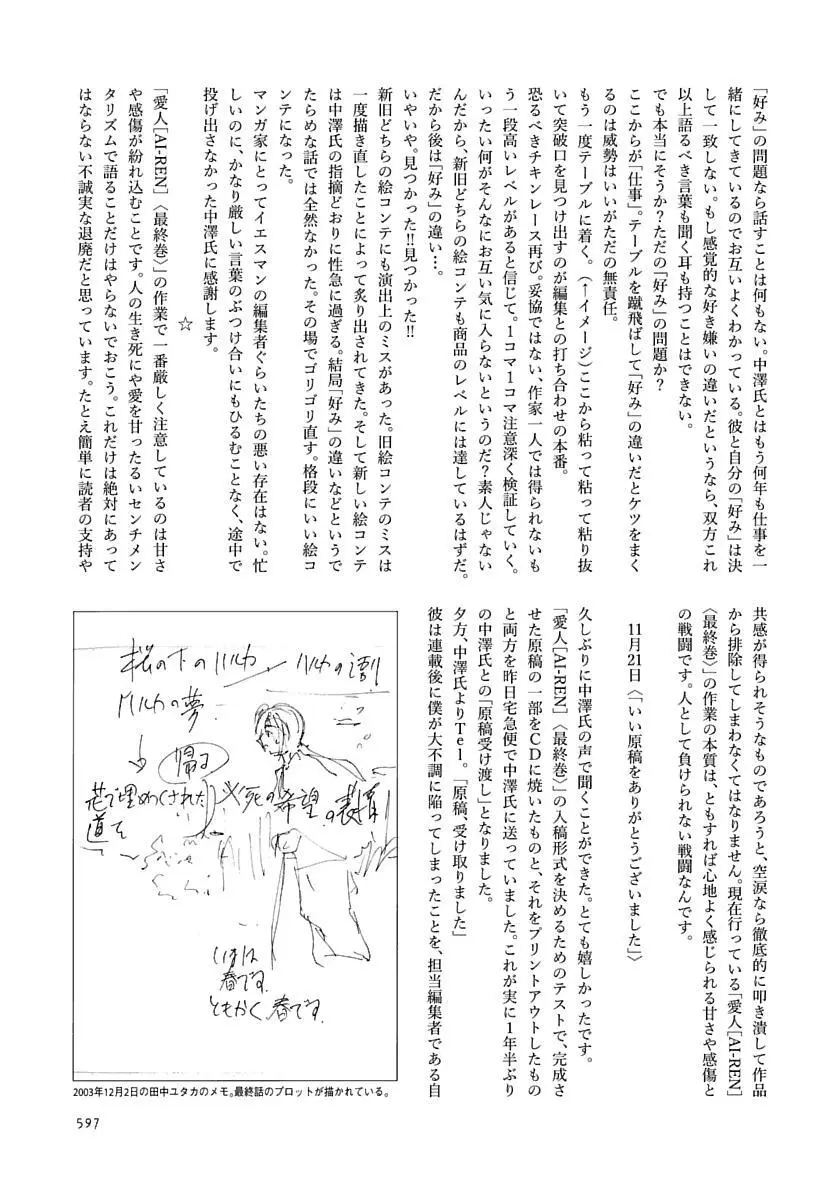 「好み」の問題なら話すことは何もない。中澤氏とはもう何年も仕事を一
緒にしてきているのでお互いよくわかっている。彼と自分の「好み」は決
して一致しない。もし感覚的な好き嫌いの違いだというなら、双方これ
以上語るべき言葉も聞く耳も持つことはできない。
でも本当にそうか？ただの「好み」の問題か？
ここからが「仕事」。テーブルを蹴飛ばして「好み」の違いだとケツをまく
るのは威勢はいいがただの無責任。
もう一度テーブルに着く。（↑イメージ）ここから粘って粘って粘り抜
いて突破口を見つけ出すのが編集との打ち合わせの本番。
恐るべきチキンレース再び。妥協ではない、作家一人では得られないも
う一段高いレベルがあると信じて。1コマ1コマ注意深く検証していく。
いったい何がそんなにお互い気に入らないというのだ？素人じゃない
んだから、新旧どちらの絵コンテも商品のレベルには達しているはずだ。
だから後は「好み」の違い…。
いやいや。見つかった!!見つかった!!
新旧どちらの絵コンテにも演出上のミスがあった。旧絵コンテのミスは
一度描き直したことによって炙り出されてきた。そして新しい絵コンテ
は中澤氏の指摘どおりに性急に過ぎる。結局「好み」の違いなどというで
たらめな話では全然なかった。その場でゴリゴリ直す。格段にいい絵コ
ンテになった。
マンガ家にとってイエスマンの編集者ぐらいたちの悪い存在はない。忙
しいのに、かなり厳しい言葉のぶつけ合いにもひるむことなく、途中で
投げ出さなかった中澤氏に感謝します。
☆
「愛人[AI-REN]〈最終巻〉」の作業で一番厳しく注意しているのは甘さ
や感傷が紛れ込むことです。人の生き死にや愛を甘ったるいセンチメン
タリズムで語ることだけはやらないでおこう。これだけは絶対にあって
はならない不誠実な退廃だと思っています。たとえ簡単に読者の支持や
共感が得られそうなものであろうと、空涙なら徹底的に叩き潰して作品
から排除してしまわなくてはなりません。現在行っている「愛人[AI-REN]
〈最終巻〉」の作業の本質は、ともすれば心地よく感じられる甘さや感傷と
の戦闘です。人として負けられない戦闘なんです。
11月21日〈「いい原稿をありがとうございました」〉
久しぶりに中澤氏の声で聞くことができた。とても嬉しかったです。
「愛人[AI-REN]〈最終巻〉」の入稿形式を決めるためのテストで、完成さ
せた原稿の一部をCDに焼いたものと、それをプリントアウトしたもの
と両方を昨日宅急便で中澤氏に送っていました。これが実に1年半ぶり
の中澤氏との「原稿受け渡し」となりました。
夕方、中澤氏よりTel。「原稿、受け取りました」
彼は連載後に僕が大不調に陥ってしまったことを、担当編集者である自
桜の下のハルカ
ハルカの
ハルカの夢
帰る
花で埋めつくされた
道で
死の希望の表情
いまは
春です
ともかく 春です
2003年12月2日の田中ユタカのメモ。最終話のプロットが描かれている。
597